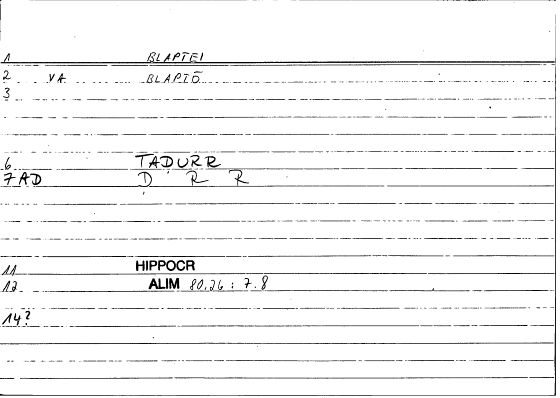 1 BLAPTEI
2 VA BLAPTŌ
3
6 TADURR
7 AD D R R
11 HIPPOCR
12 ALIM 80,26 : 7.8
14?